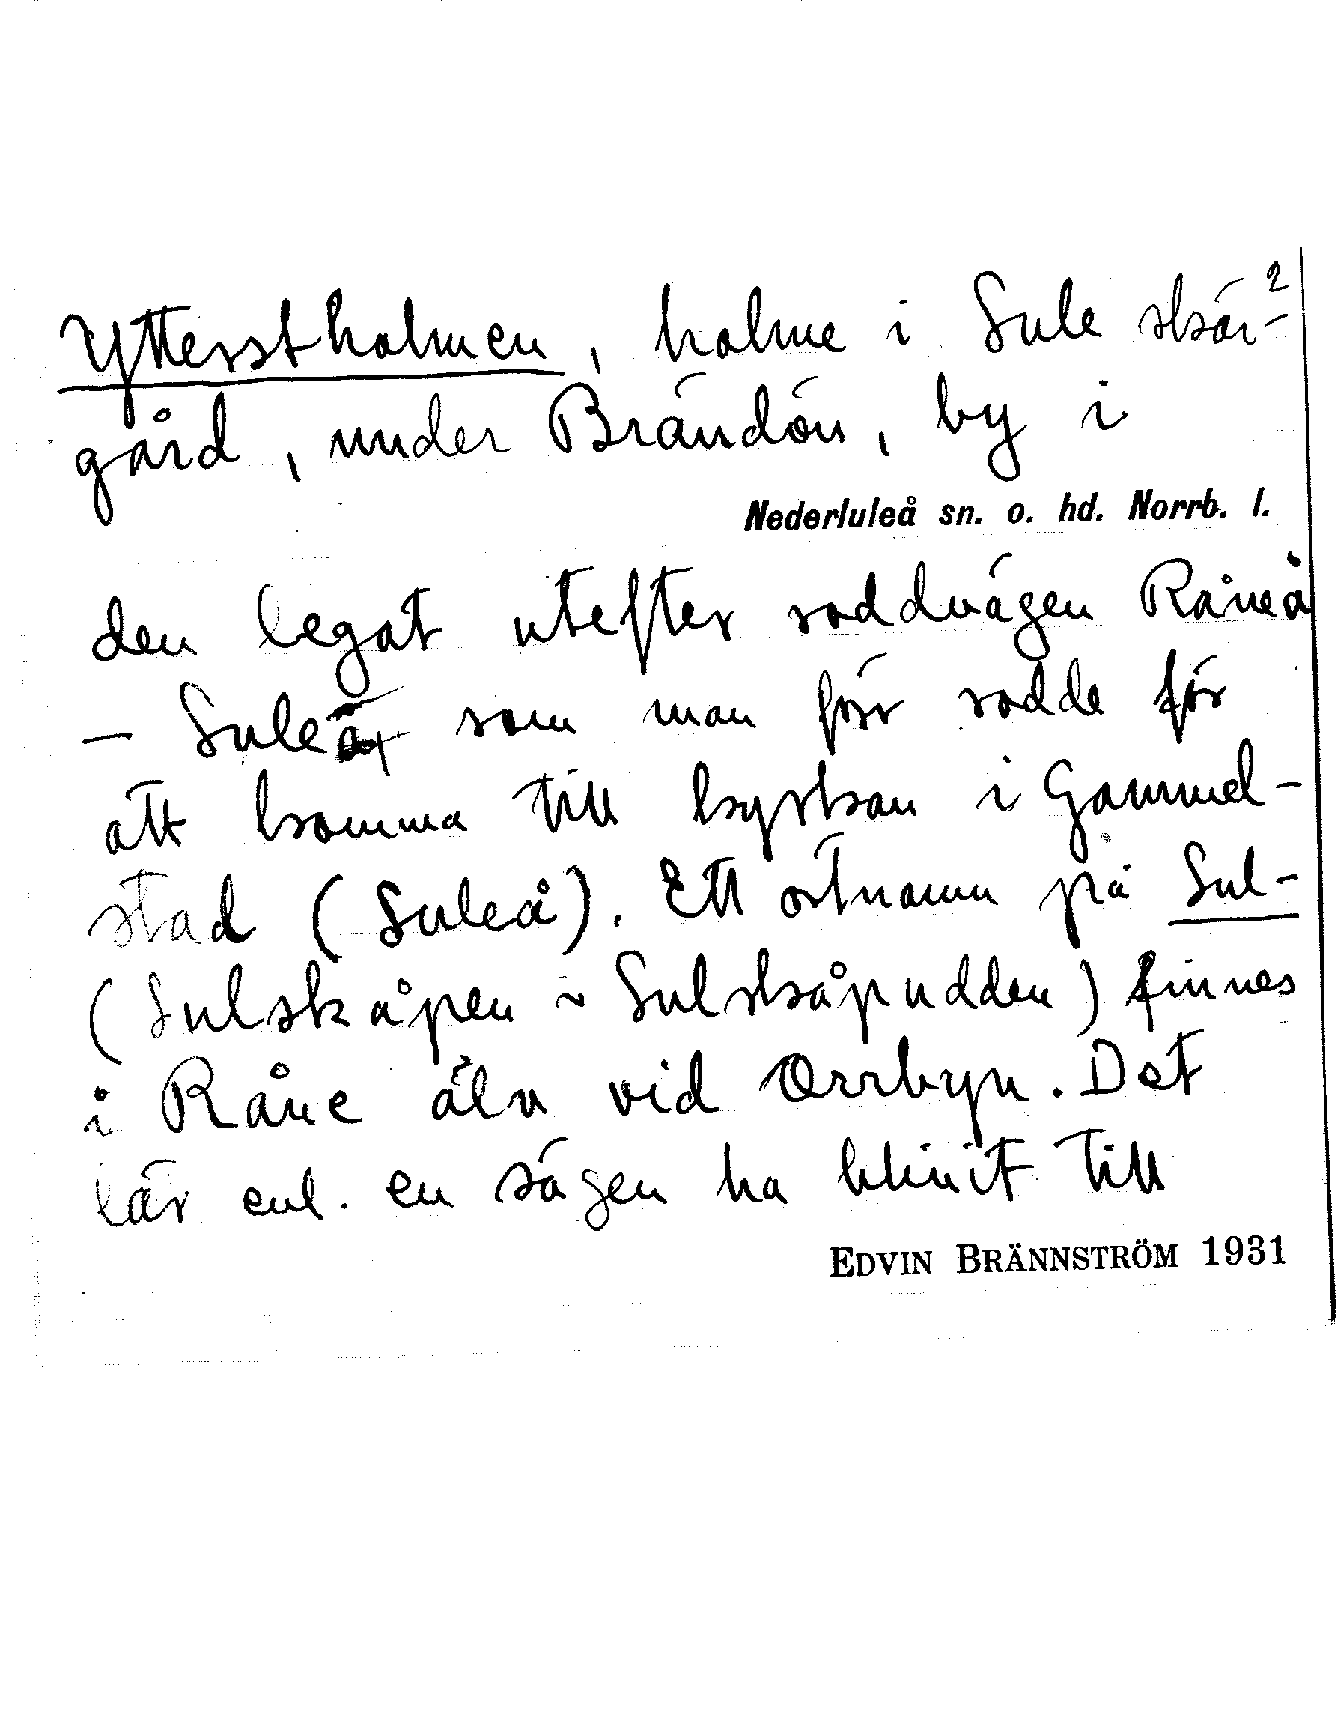 Ytterstholmen, holme i Lule skär- 2
gård, under Brändön, by i
Nederluleå sn. o. hd. Norrb. l.
den legat utefter roddvägen Råneå
– Luleå som man förr rodde för
att komma till kyrkan i Gammel-
stad (Luleå). Ett ortnamn på Lul-
(Lulskåpen ~ Lulskåpudden) finnes
i Råne älv vid Orrbyn. Det
lär enl. en sägen ha blivit till
EDVIN BRÄNNSTRÖM 1931